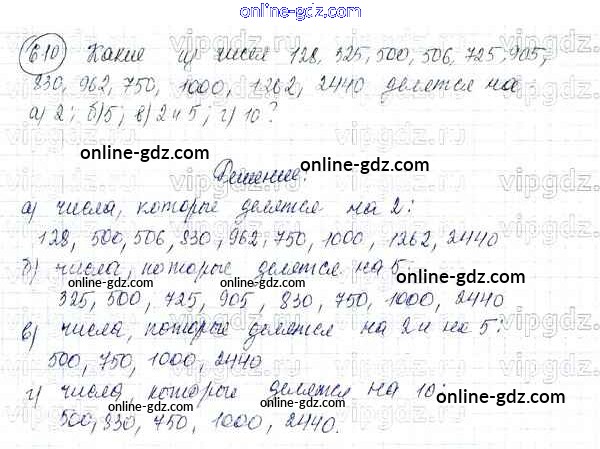 online-gdz.com
610 Какие из чисел 128, 325, 500, 506, 725, 905,
830, 962, 750, 1000, 1262, 2440 делятся на
а) 2; б) 5; в) 2 и 5; г) 10?
online-gdz.com
online-gdz.com
Решение:
а) числа, которые делятся на 2:
128, 500, 506, 830, 962, 750, 1000, 1262, 2440
б) числа, которые делятся на 5
online-gdz.com
325, 500, 725, 905, 830, 750, 1000, 2440
online-gdz.com
в) числа, которые делятся на 2 и на 5:
500, 750, 1000, 2440
online-gdz.com
г) числа, которые делятся на 10:
online-gdz.com
online-gdz.com
500, 830, 750, 1000, 2440.